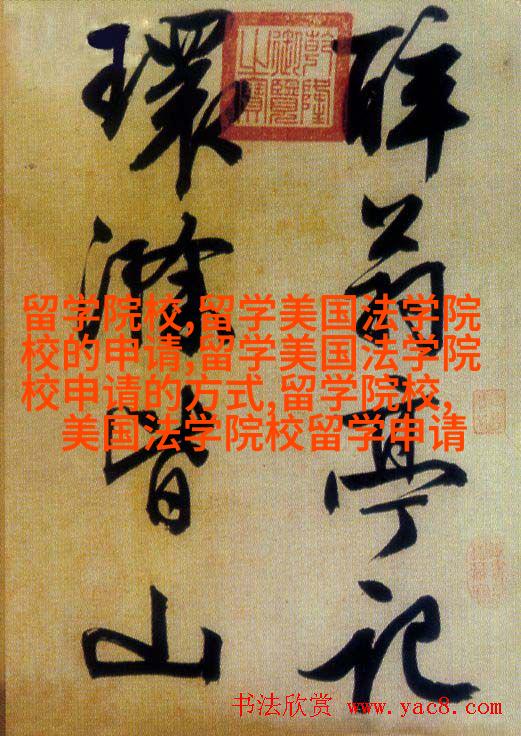 醉翁亭记
環滁皆山
乾隆
御覽
之寶
留学院校,留学美国法学院
校的申请,留学美国法学院
校申请的方式,留学院校,
美国法学院校留学申请
书法欣赏 www.yac8.com